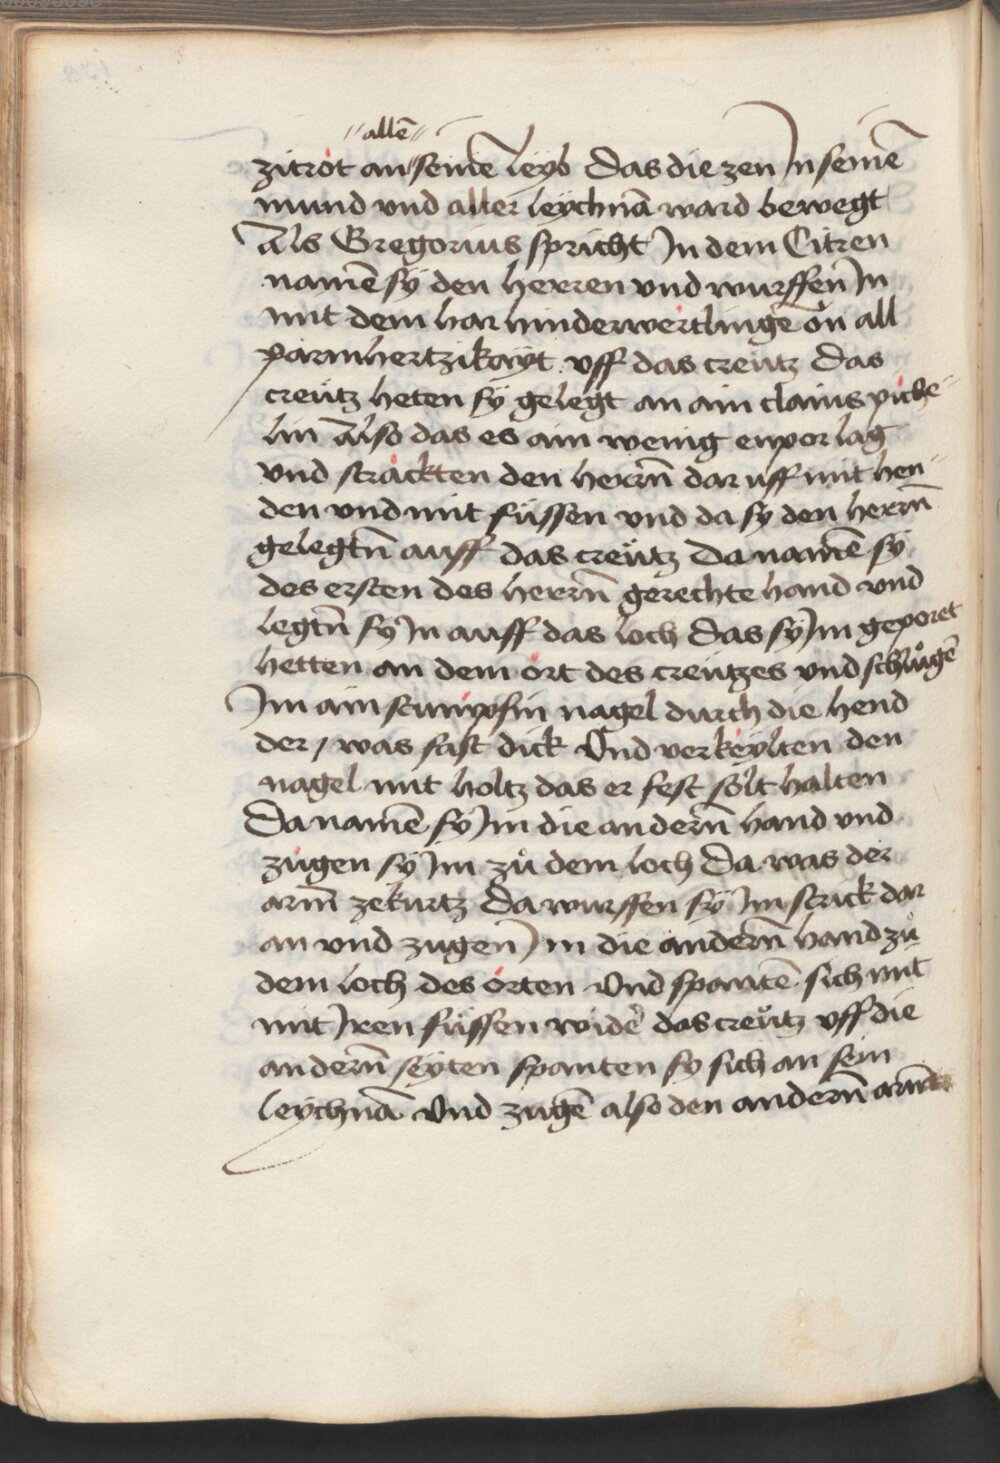 "allē"
zitrot an seinē leyb Das die zen Jn seinē
mund vnd aller leychnā ward bewegt
Als Gregorius spricht Jn dem Citren
namē sÿ den herren vnd wurffen Jn
mit dem har hinderwertlingē on all
parmhertzikayt vff das creutz Das
creutz heten sÿ gelegt an ain clains piche-
lin Also das es ain wenig enpor lag
vnd strackten den herrñ dar uff mit hen-
den vnd mit füssen vnd da sy den herrñ
gelegtñ auff das creütz Da namē sÿ
des ersten des herrñ gerechte hand vnd
legtñ sÿ Jn auff das loch Das sÿ Jm geporet
hetten an dem ort des creutzes vnd schlůgē
Jm ain stumpfin nagel durch die hend
der / was fast dick Vnd verkeylten den
nagel mit holtz das er fest solt halten
Da namē sÿ Jm die anderñ hand vnd
zugen sÿ Jm zů dem loch Da was der
arm zekurtz Da wurffen sÿ Jm strick dar
an vnd zugen Jm die anderñ hand zů
dem loch des orten Vnd spantē sich mit
mit Jren füssen wider das creütz vff die
anderñ seyten spanten sy sich an sein
leychnā Vnd zugē also den anderñ arm